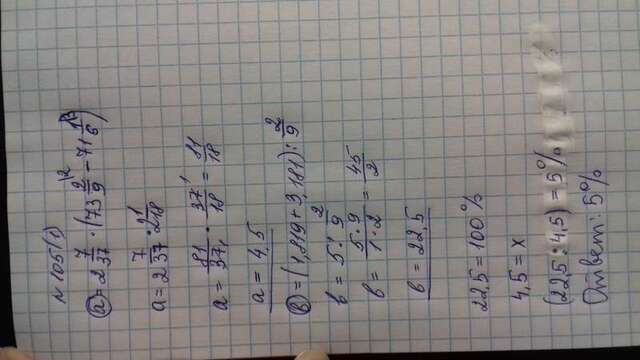 №105(1)
a = 2 7/37 · (73 2/9 |2 - 71 1/6 |3)
a = 2 7/37 · 2 1/18
a = 81/37 · 37/18 = 81/18
a = 4,5
в = (1,819 + 3,181) : 2/9
в = 5 : 2/9
в = 5·9/1·2 = 45/2
в = 22,5
22,5 = 100%
4,5 = x
(22,5 : 4,5) = 5%
Ответ: 5%